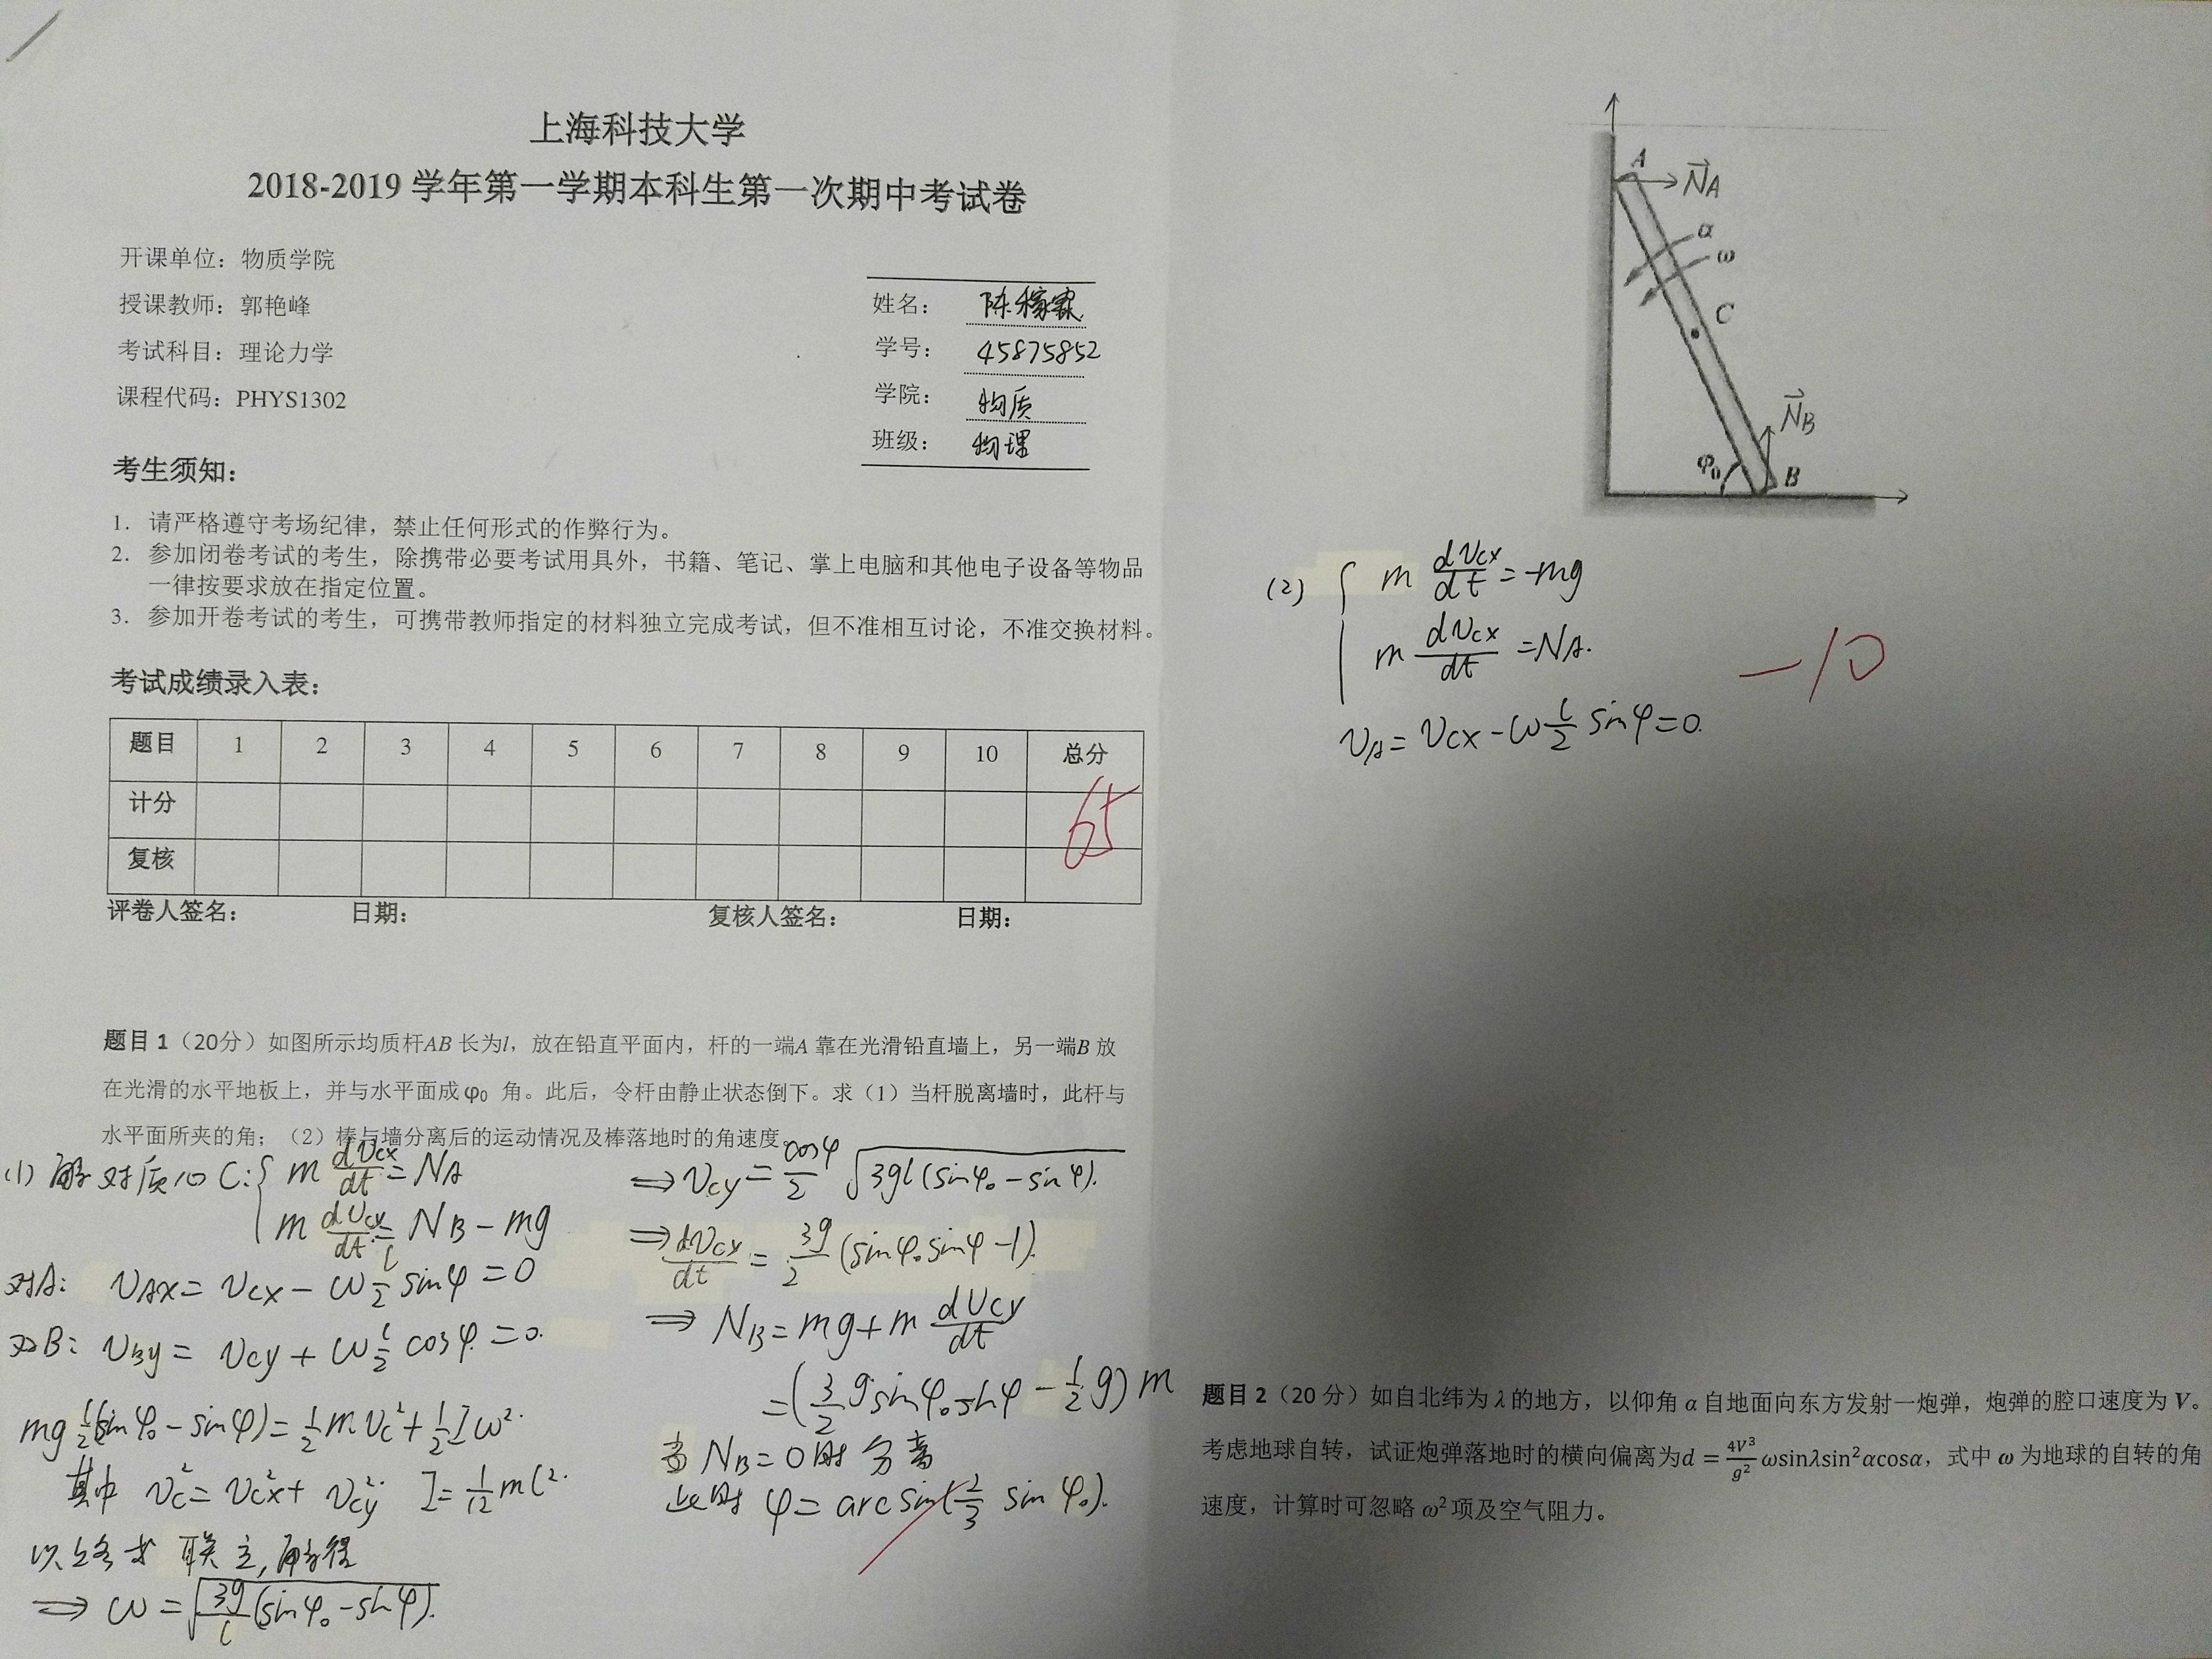 上海科技大学
2018-2019 学年第一学期本科生第一次期中考试卷
开课单位：物质学院
授课教师：郭艳峰
考试科目：理论力学
课程代码：PHYS1302
姓名： 陈稼霖
学号： 45875852
学院： 物质
班级： 物理
考生须知：
1. 请严格遵守考场纪律，禁止任何形式的作弊行为。
2. 参加闭卷考试的考生，除携带必要考试用具外，书籍、笔记、掌上电脑和其他电子设备等物品
一律按要求放在指定位置。
3. 参加开卷考试的考生，可携带教师指定的材料独立完成考试，但不准相互讨论，不准交换材料。
考试成绩录入表：
题目 1 2 3 4 5 6 7 8 9 10 总分
计分 65
复核
评卷人签名： 日期： 复核人签名： 日期：
题目 1（20分）如图所示均质杆AB 长为l，放在铅直平面内，杆的一端A 靠在光滑铅直墙上，另一端B 放
在光滑的水平地板上，并与水平面成 φ₀ 角。此后，令杆由静止状态倒下。求（1）当杆脱离墙时，此杆与
水平面所夹的角；（2）棒与墙分离后的运动情况及棒落地时的角速度。
(1) 解 对质心C: { m dv_cx/dt = N_A
m dv_cy/dt = N_B - mg
对A: v_Ax = v_cx - ω l/2 sinφ = 0
对B: v_By = v_cy + ω l/2 cosφ = 0.
mg l/2 (sinφ₀ - sinφ) = 1/2 m v_c² + 1/2 I ω².
其中 v_c² = v_cx² + v_cy² I = 1/12 m l².
以上各式 联立, 解得
⇒ ω = √(3g/l (sinφ₀ - sinφ)).
⇒ v_cy = cosφ/2 √(3gl (sinφ₀ - sinφ)).
⇒ dv_cy/dt = 3g/2 (sinφ₀ sinφ - 1).
⇒ N_B = mg + m dv_cy/dt
= (3/2 g sinφ₀ sinφ - 1/2 g) m
当 N_B = 0 时 分离
此时 φ = arcsin(2/3 sinφ₀).
A N_A
α
ω
C
N_B
φ₀ B
(2) { m dv_cx/dt = -mg
m dv_cx/dt = N_A.
v_A = v_cx - ω l/2 sinφ = 0.
-10
题目 2（20 分）如自北纬为 λ 的地方，以仰角 α 自地面向东方发射一炮弹，炮弹的腔口速度为 V。
考虑地球自转，试证炮弹落地时的横向偏离为d = 4V³/g² ωsinλsin²αcosα，式中 ω 为地球的自转的角
速度，计算时可忽略 ω² 项及空气阻力。